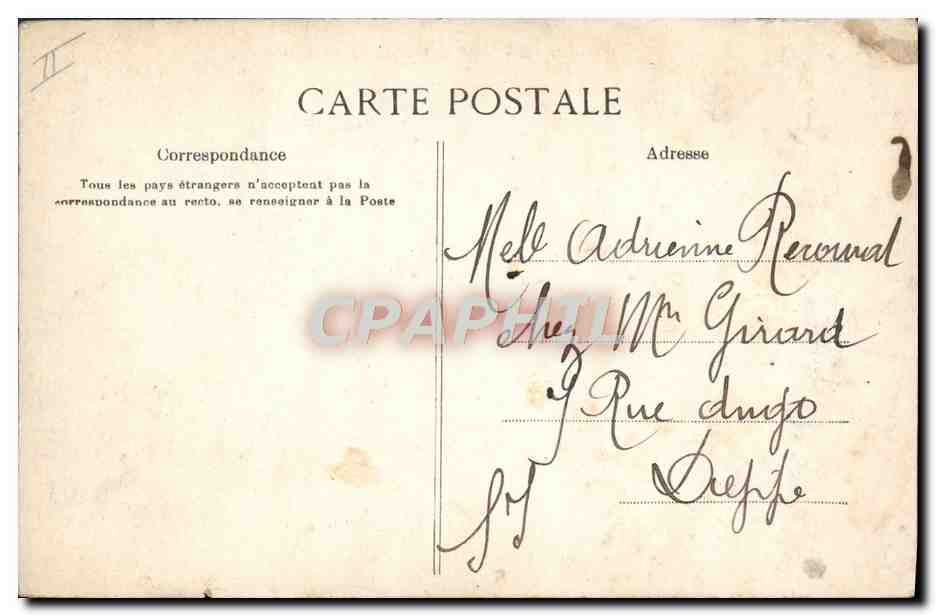 II
CARTE POSTALE
Correspondance
Tous les pays étrangers n'acceptent pas la
correspondance au recto, se renseigner à la Poste
Adresse
Melle Adrienne
CPAPHIL
chez Mr Girard
9 Rue
Dieppe